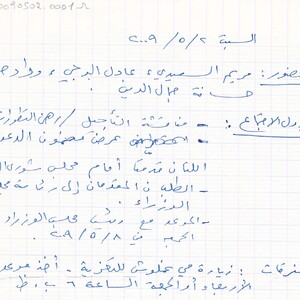 0090502.0001.
السبت ٢ / ٥ / ٢٠٠٩
ـضور : مريم السعيدي ، عادل البرجي ، وداد حـ
جمال الدين .
ـدول الاجتماع : - مناقشة التأجيل / رفض التطورات
- عرض مضمون الدعو
اللتان قدمتا أمام مجلس شورى الـ
- الطلبان المقدمان إلى رئاسة مجلـ
الوزراء .
- الموعد مع رئيس مجلس الوزراء
الجمعة في ٨ / ٥ / ٠٩
ـفرقات : زيارة مي للتعزية - أخذ موعد
الأربعاء أو الجمعة الساعة ٦ ب . ظ